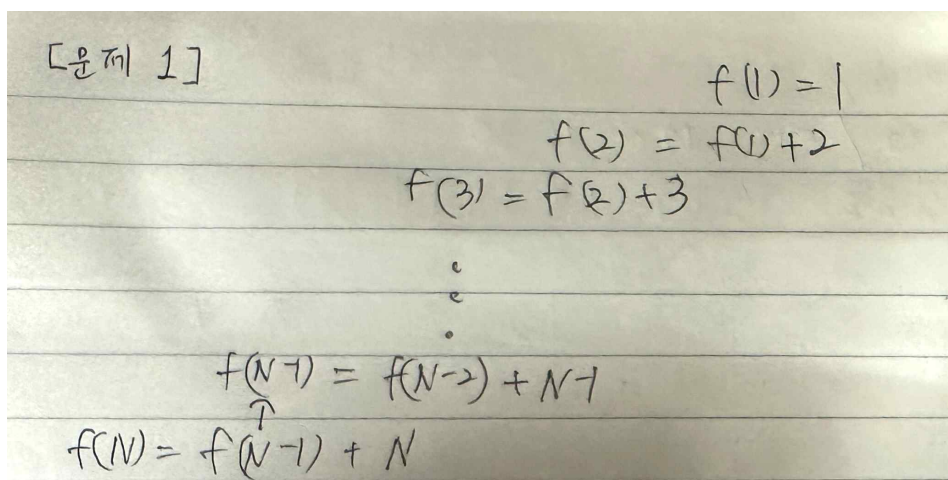 [문제 1]
f(1) = 1
f(2) = f(1) + 2
f(3) = f(2) + 3
f(N-1) = f(N-2) + N-1
↑
f(N) = f(N-1) + N